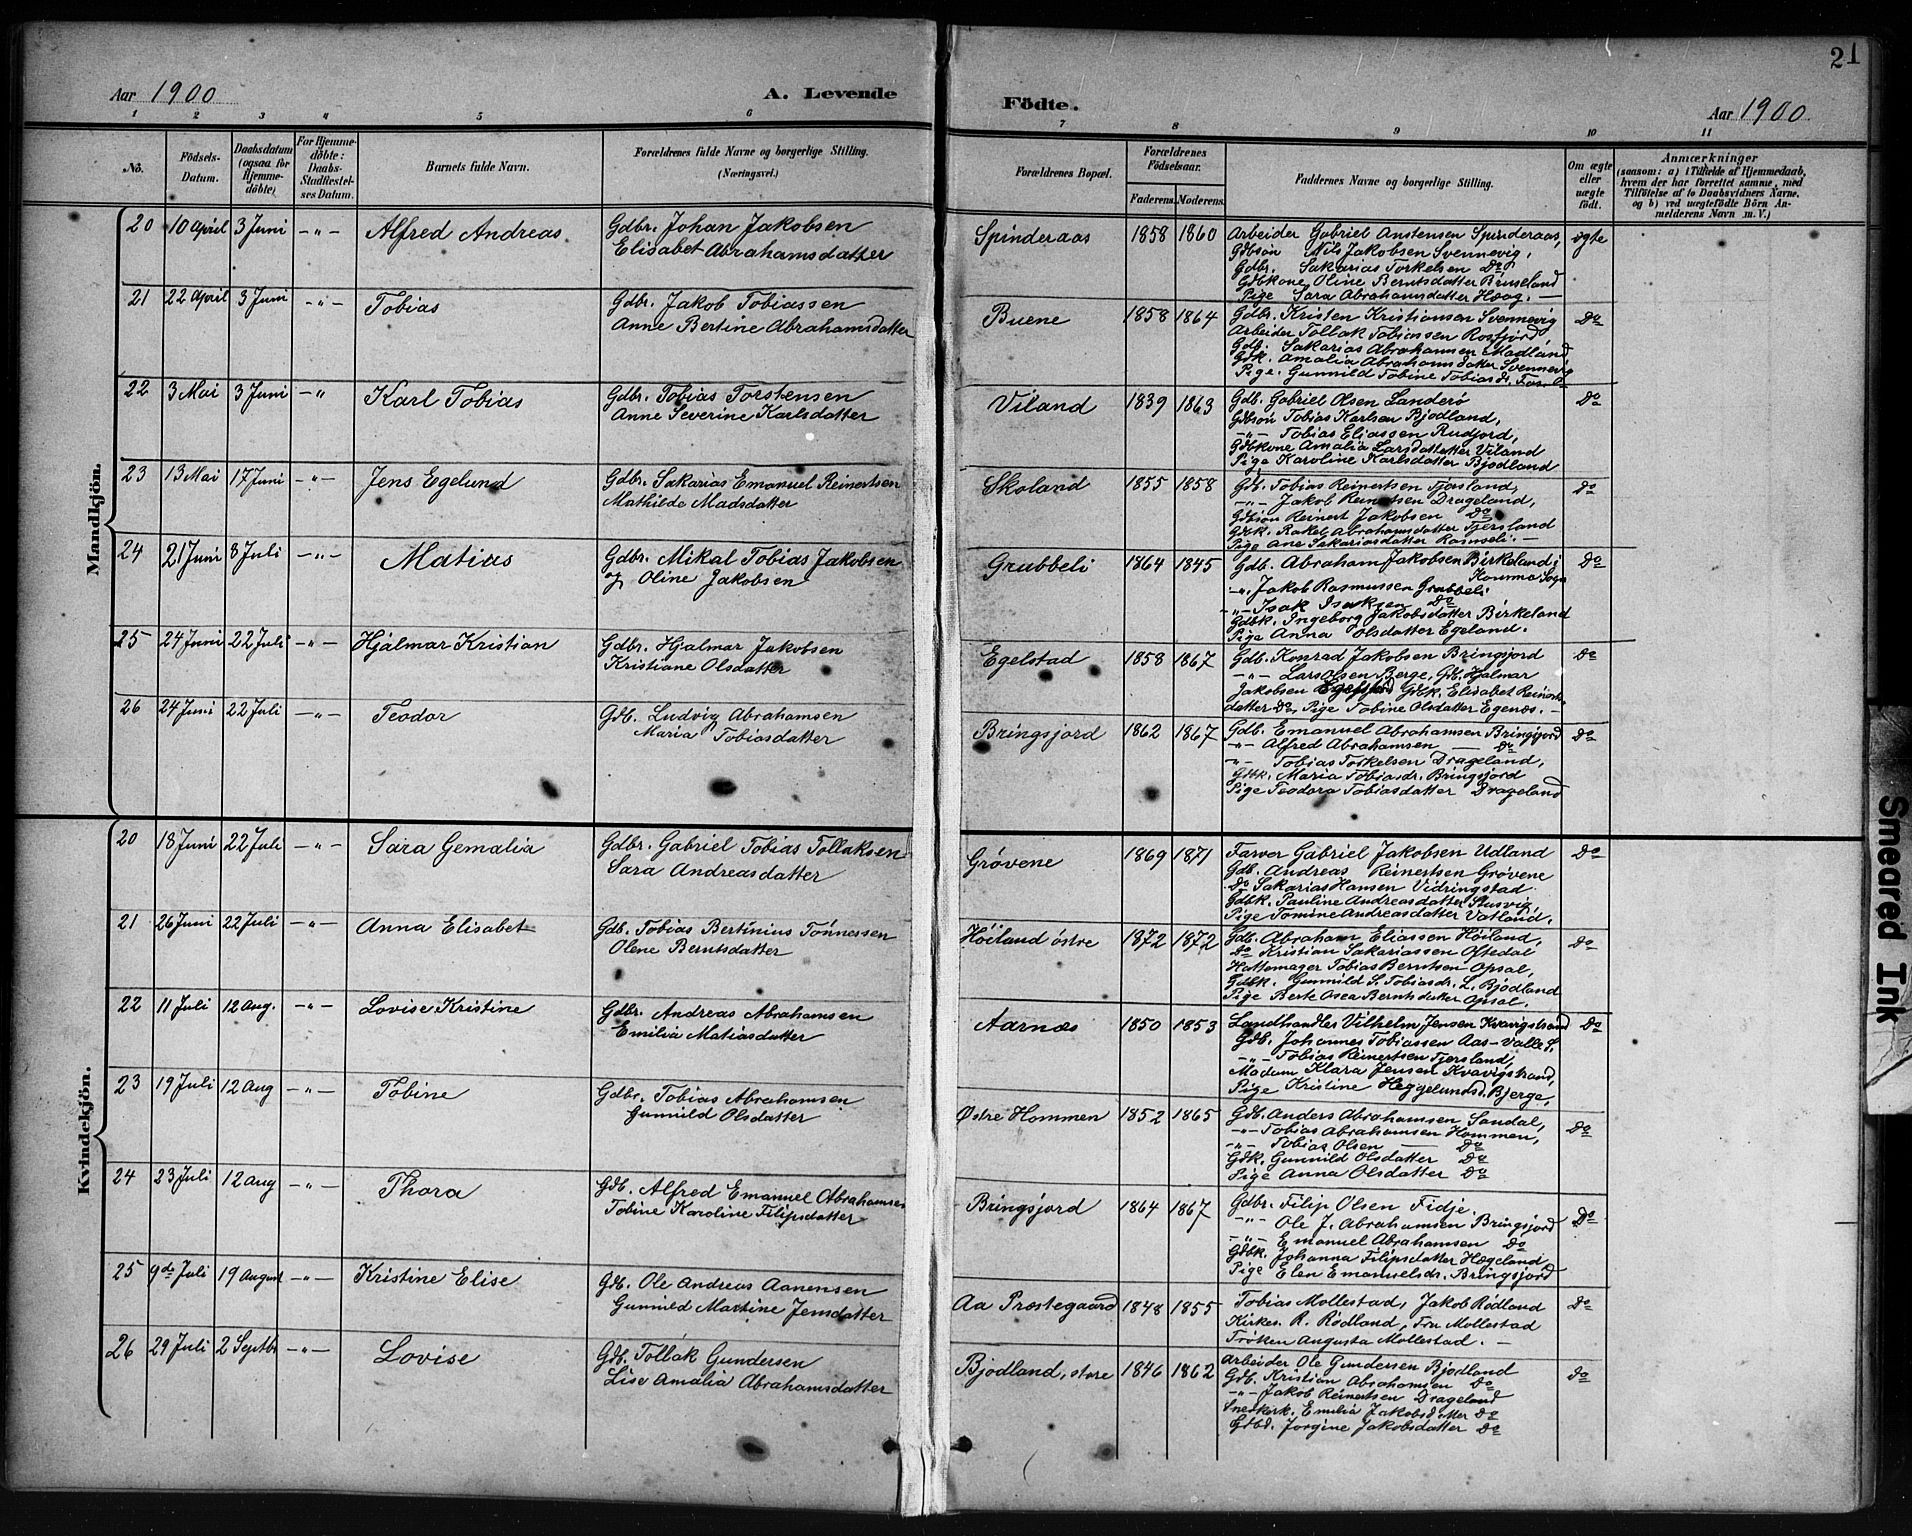 21
Aar 1900
A. Levende
Födte.
Aar 1900
1 2 3 4 5 6 7 8 9 10 11
No.
Födsels-Datum.
Daabsdatum (ogsaa for Hjemme-döbte)
For Hjemme-döbte: Daabs-Stadfæstelses Datum.
Barnets fulde Navn.
Forældrenes fulde Navne og borgerlige Stilling. (Næringsvei.)
Forældrenes Bopæl.
Forældrenes Födselsaar.
Faderens. Moderens.
Faddernes Navne og borgerlige Stilling.
Om ægte eller uægte födt.
Anmærkninger
(saasom: a) i Tilfælde af Hjemmedaab, hvem der har forrettet samme, med Tilföielse af to Daabsvidners Navne, og b) ved uægtefödte Börn Anmelderens Navn m. V.)
Mandkjön.
20 10 April 3 Juni -"- Alfred Andreas Gdbr. Johan Jakobsen
Elisabet Abrahamsdatter
Spinderaas 1858 1860 Arbeider Gabriel Anstensen Spinderaas, ægte
Gdbsøn Nils Jakobsen Svennevig,
Gdbr. Sakarias Torkelsen Do
Gdbkone Oline Berntsdatter Briseland
Pige Sara Abrahamsdatter Haag. -
21 22 April 3 Juni -"- Tobias Gdbr. Jakob Tobiassen
Anne Bertine Abrahamsdatter
Buene 1858 1864 Gdbr. Kristen Kristiansen Svennevig Do
Arbeider Tollak Tobiassen Rosfjord,
Gdb. Sakarias Abrahamsen Madland
Gdk. Amalia Abrahamsdatter Svennevig
Pige. Gunnild Tobine Tobiasd.
22 3 Mai 3 Juni -" Karl Tobias Gdbr. Tobias Torstensen
Anne Severine Karlsdatter
Viland 1839 1863 Gdb. Gabriel Olsen Landerø Do
Gdbsøn Tobias Karlsen Bjodland,
-"- Tobias Eliassen Rudjord,
Gdbkone Amalia Larsdatter Viland
Pige Karoline Karlsdatter Bjodland
23 13 Mai 17 Juni -"- Jens Egelund Gdbr. Sakarias Emanuel Reinertsen
Mathilde Madsdatter
Skoland 1855 1858 Gdb. Tobias Reinertsen Tjersland, Do
-"- Jakob Reinertsen Drageland,
Gdbsøn Reinert Jakobsen Do
Gdbk. Rakel Abrahamsdatter Tjersland
Pige Ane Sakariasdatter Ramseli. -
24 21 Juni 8 Juli -"- Matias Gdbr. Mikal Tobias Jakobsen
og Oline Jakobsen
Grubbeli 1864 1845 Gdb. Abraham Jakobsen Birkeland i Do
Homma Sogn
-"- Jakob Rasmussen Grubbeli
-"- Isak Isaksen Do
Gdbk. Ingeborg Jakobsdatter Birkeland
Pige Anna Olsdatter Egeland.
25 24 Juni 22 Juli -"- Hjalmar Kristian Gdbr. Hjalmar Jakobsen
Kristiane Olsdatter
Egelstad 1858 1867 Gdb. Konrad Jakobsen Bringsjord Do
-"- Lars Olsen Berge, Gdb. Hjalmar
Jakobsen Gdbk. Elisabet Reinerts-
datter Do, Pige Tobine Olsdatter Egenæs. -
26 24 Juni 22 Juli -"- Teodor Gdb. Ludvig Abrahamsen
Maria Tobiasdatter
Bringsjord 1862 1867 Gdb. Emanuel Abrahamsen Bringsjord Do
-"- Alfred Abrahamsen — Do
-"- Tobias Torkelsen Drageland,
Gdbk. Maria Tobiasdr. Bringsjord
Pige Teodora Tobiasdatter Drageland
Kvindekjön.
20 18 Juni 22 Juli -"- Sara Gemalia Gdbr. Gabriel Tobias Tollaksen
Sara Andreasdatter
Grøvene 1869 1871 Farver Gabriel Jakobsen Udland Do
Gdb. Andreas Reinertsen Grøvene
Do Sakarias Hansen Vidringstad
Gdbk. Pauline Andreasdatter Stusvig,
Pige Tomine Andreasdatter Vatland.
21 26 Juni 22 Juli -"- Anna Elisabet Gdb. Tobias Bertinius Tönnessen
Olene Berntsdatter
Høiland østre 1872 1872 Gdb. Abraham Eliassen Høiland, Do
Do Kristian Sakariassen Oftedal
Hattemager Tobias Berntsen Opsal,
Gdbk. Gunnild S. Tobiasdr. L. Bjodland
Pige Berte Osea Berntsdatter Opsal.
22 11 Juli 12 Aug. -"- Lovise Kristine Gdbr. Andreas Abrahamsen
Emilia Matiasdatter
Aarnæs 1850 1853 Landhandler Vilhelm Jensen Kvavigstrand Do
Gdb. Johannes Tobiassen Aas-Valle S.
-"- Tobias Reinertsen Tjersland,
Madam Klara Jensen Kvavigstrand,
Pige Kristine Heggelundsd. Bjerge.
23 19 Juli 12 Aug -"- Tobine Gdbr. Tobias Abrahamsen
Gunnild Olsdatter
Østre Hommen 1852 1865 Gdb. Anders Abrahamsen Sandal, Do
-"- Tobias Abrahamsen Hommen,
-"- Tobias Olsen — Do
Gdk. Gunnild Olsdatter Do
Pige Anna Olsdatter Do
24 23 Juli 12 Aug -"- Thora Gdb. Alfred Emanuel Abrahamsen
Tobine Karoline Filipsdatter
Bringsjord 1864 1867 Gdbr. Filip Olsen Fidje. Do
-"- Ole J. Abrahamsen Bringsjord
-"- Emanuel Abrahamsen Do
Gdbk. Johanna Filipsdatter Hægeland
Pige Elen Emanuelsdr. Bringsjord
25 9de Juli 19 August -"- Kristine Elise Gdb. Ole Andreas Aanensen
Gunnild Martine Jensdatter
Aa Præstegaard 1848 1855 Tobias Mollestad, Jakob Rødland Do
Kirkes. R. Rødland, Fru Mollestad
Frøken Augusta Mollestad. -
26 29 Juli 2 Septbr -"- Lovise Gdb. Tollak Gundersen
Lise Amalia Abrahamsdatter
Bjodland, store 1846 1862 Arbeider Ole Gundersen Bjodland Do
Gdb. Kristian Abrahamsen Do
-"- Jakob Reinertsen Drageland
Snedkerk. Emilia Jakobsdatter Do
Gdbd. Jorgine Jakobsdatter Do
Smeared Ink